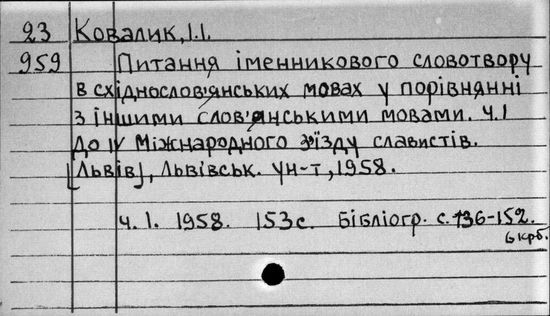 23 Ковалик, І.І.
959 Питання іменникового словотвору
в східнослов'янських мовах у порівнянні
з іншими слов'янськими мовами. Ч.І
До IV Міжнародного з'їзду славистів.
[Львів], Львівськ. ун-т, 1958.
Ч. І. 1958. 153с. Бібліогр. с. 136-152.
б крб.